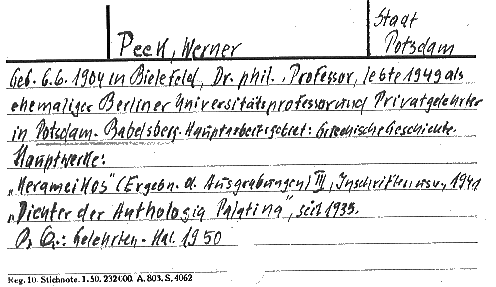 Staat
Peek, Werner
Potsdam
Geb. 6.6. 1904 in Bielefeld, Dr. phil., Professor, lebte 1949 als
ehemaliger Berliner Universitätsprofessor und Privatgelehrter
in Potsdam-Babelsberg. Hauptarbeitsgebiet: Griechische Geschichte.
Hauptwerke:
„Kerameikos" (Ergebn. d. Ausgrabungen) III, Inschriften usw., 1941
„Dichter der Anthologia Palatina", seit 1935.
Qu.: Gelehrten-Kal. 1950
Reg. 10. Stichnote. 1. 50. 232000. A. 803. S. 4062